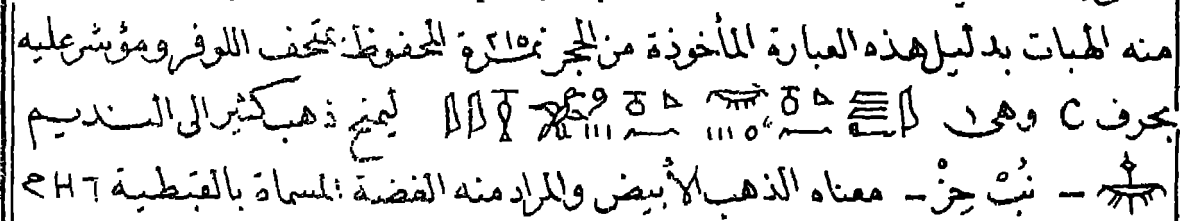 منه الهبات بدليل هذه العبارة المأخوذة من الحجر نمرة ٢١٥ المحفوظ بمتحف اللوفر ومؤشر عليه
بحرف C وهى ليمنح ذهب كثير الى النديم
نُبْ حِزْ ـ معناه الذهب الأبيض والمراد منه الفضة المسماة بالقبطية ϩΗΤ